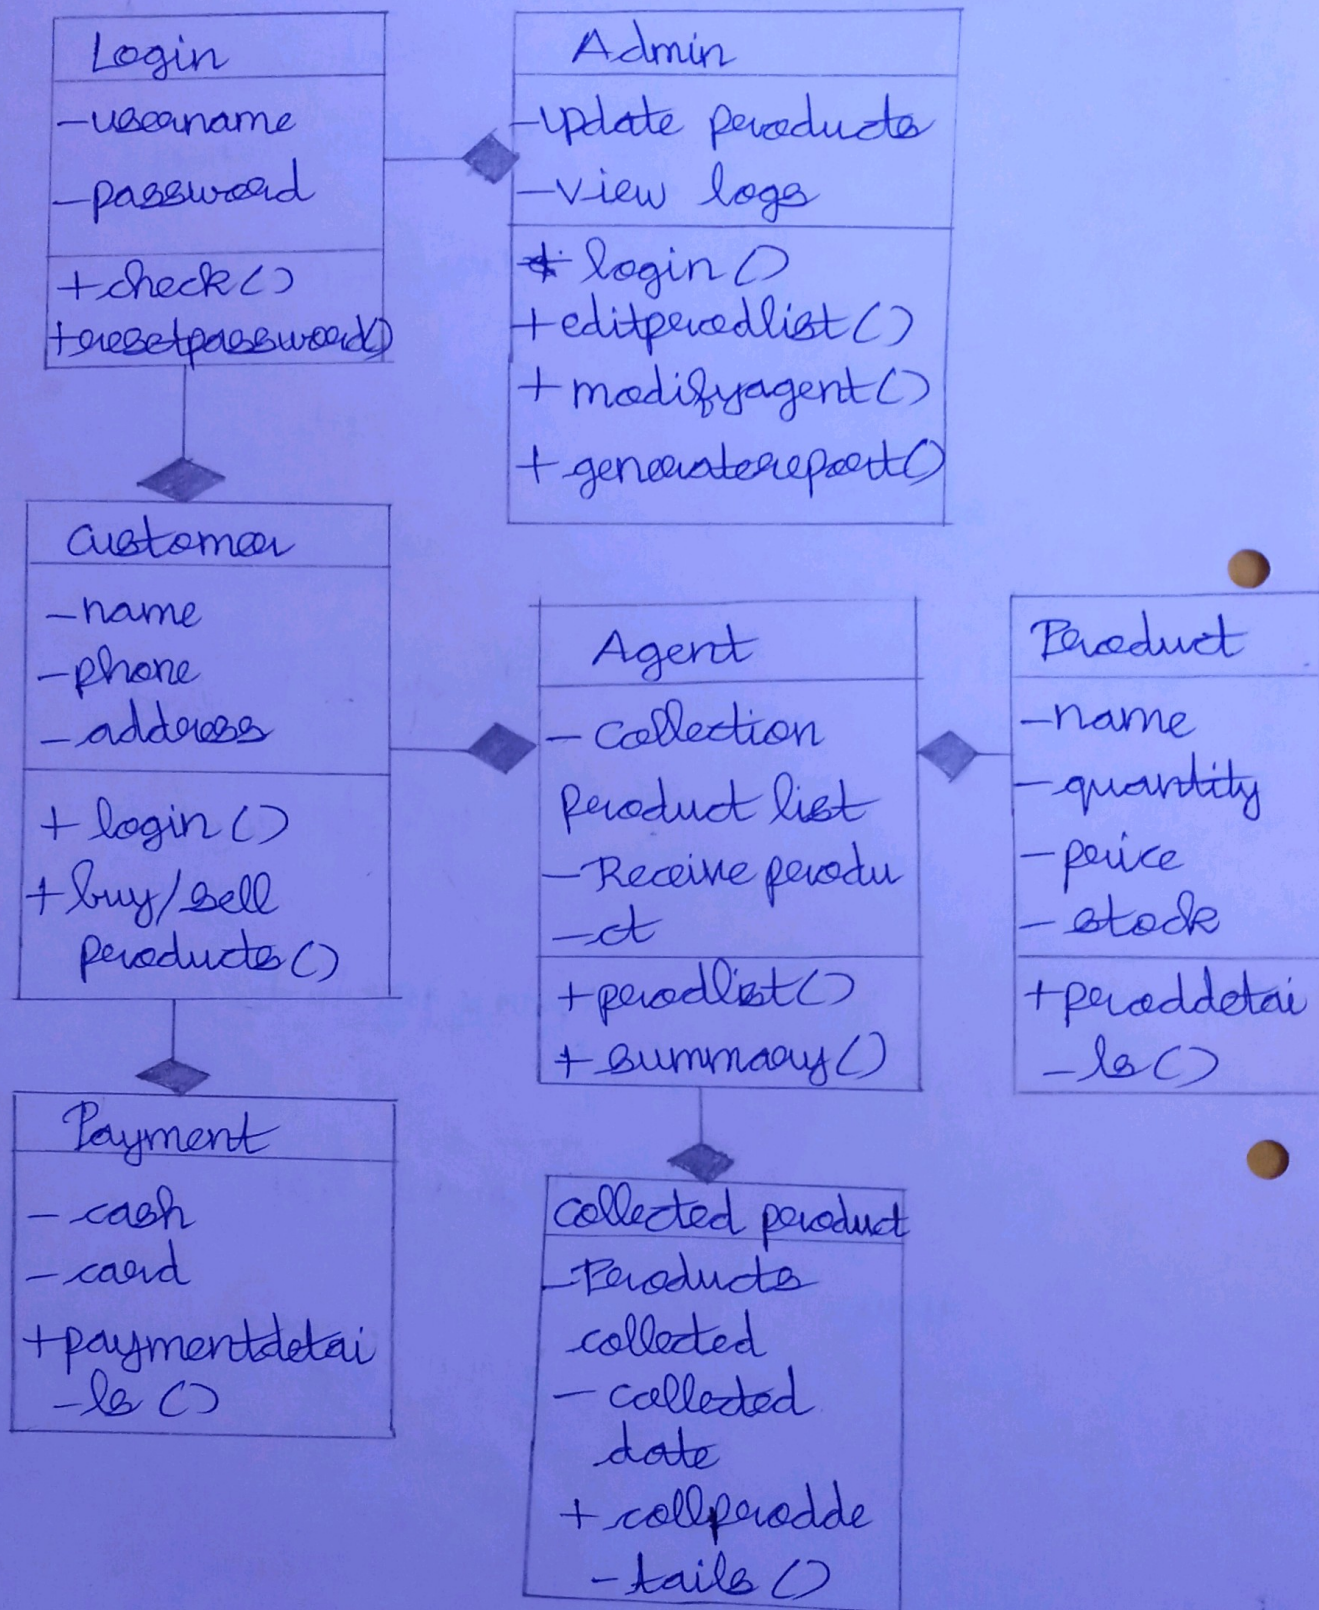 Login
-username
-password
+check()
+resetpassword()
Admin
-update products
-view logs
+ login()
+editprodlist()
+modifyagent()
+generatereport()
Customer
-name
-phone
-address
+ login()
+ buy/sell
products()
Agent
- Collection
product list
-Receive produ
-ct
+prodlist()
+summary()
Product
-name
-quantity
-price
-stock
+proddetai
-ls()
Payment
-cash
-card
+paymentdetai
-ls()
collected product
-Products
collected
- collected
date
+ collprodde
-tails()